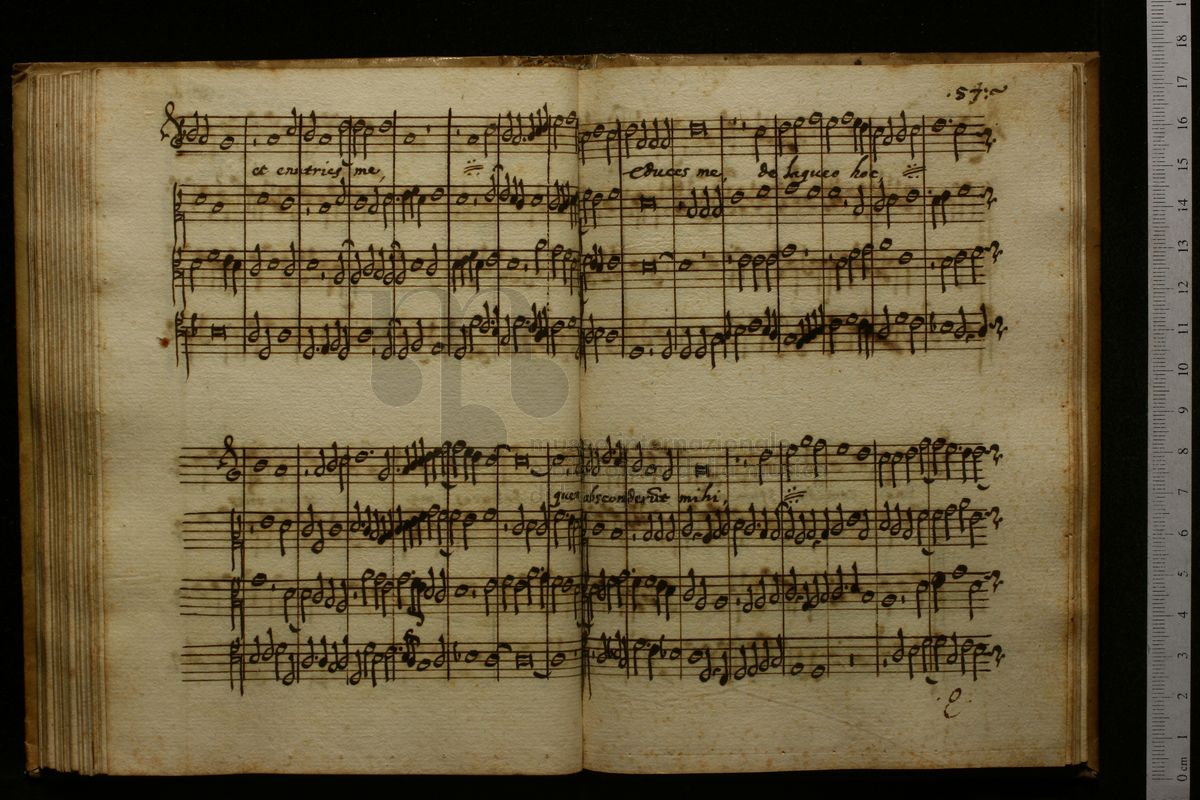 .57.~
et enutries me,
educes me, de laqueo hoc,
museo internazionale
quem absconderūt mihi,
0 cm 1 2 3 4 5 6 7 8 9 10 11 12 13 14 15 16 17 18